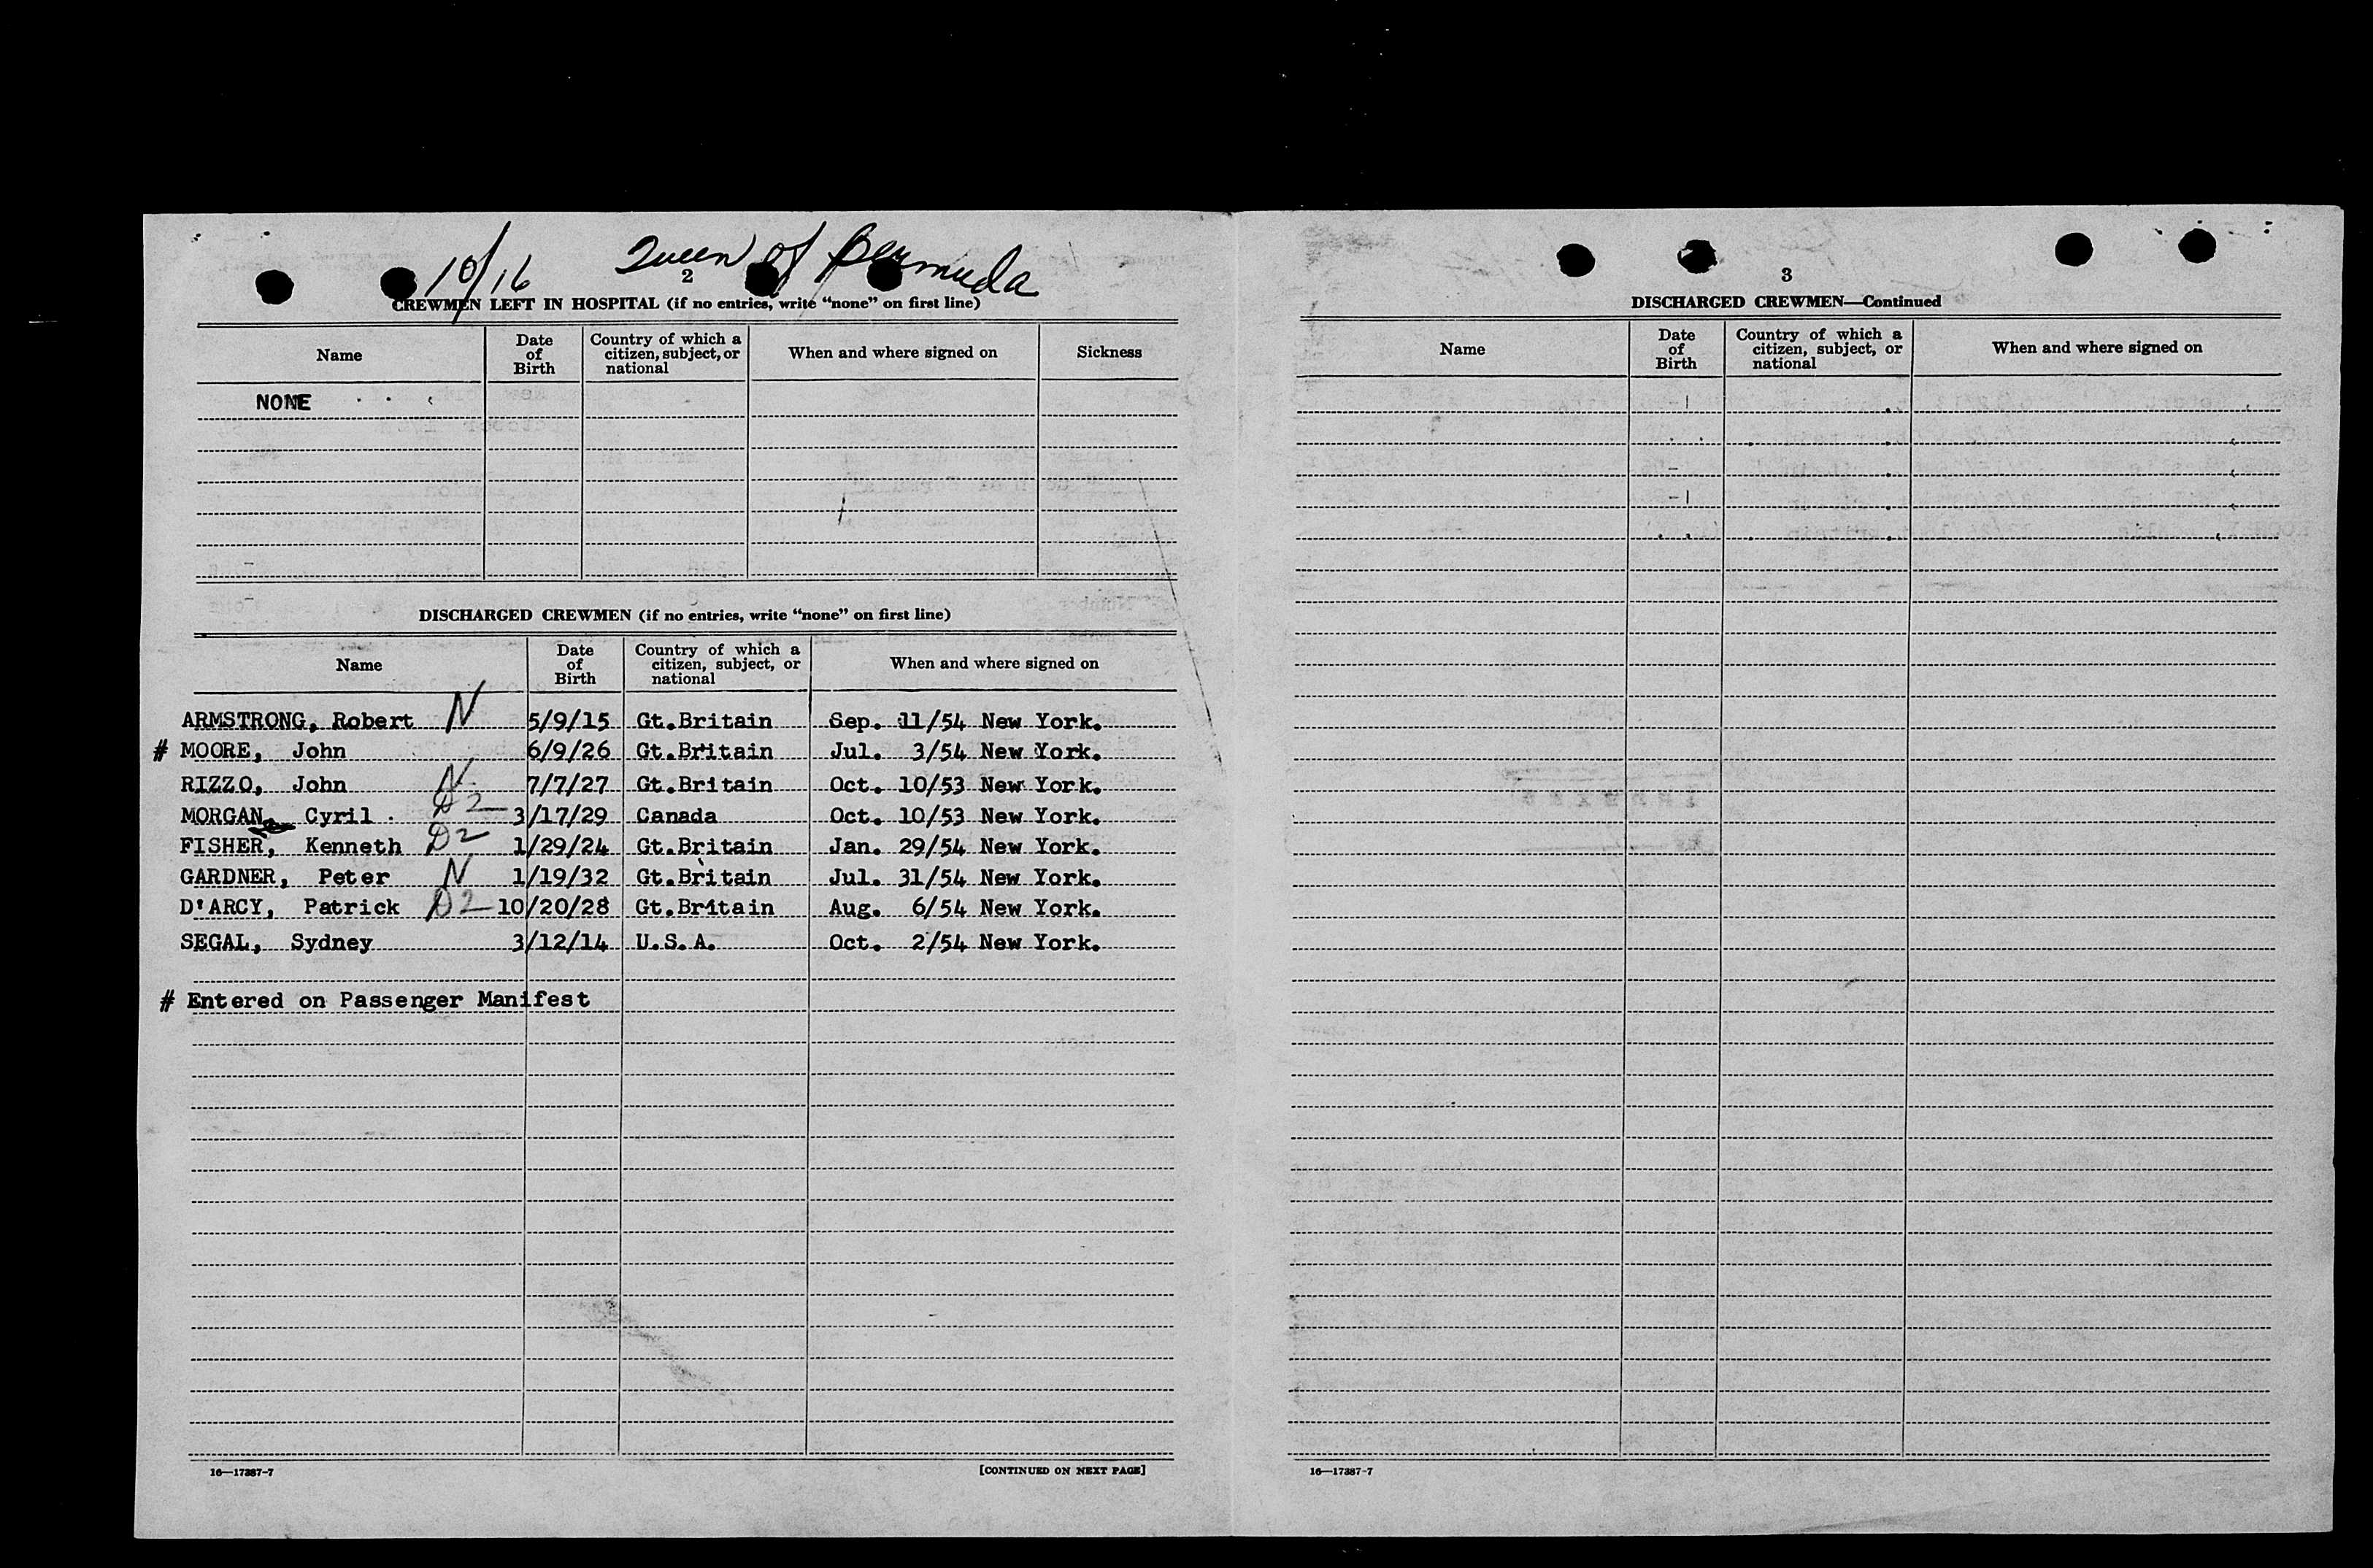 10/16 Queen of Bermuda
2
CREWMEN LEFT IN HOSPITAL (if no entries, write “none” on first line)
Name
Date of Birth
Country of which a citizen, subject, or national
When and where signed on
Sickness
NONE
DISCHARGED CREWMEN (if no entries, write “none” on first line)
Name
Date of Birth
Country of which a citizen, subject, or national
When and where signed on
ARMSTRONG, Robert N 5/9/15 Gt.Britain Sep. 11/54 New York.
# MOORE, John 6/9/26 Gt.Britain Jul. 3/54 New York.
RIZZO, John N 7/7/27 Gt.Britain Oct. 10/53 New York.
MORGAN, Cyril D2 3/17/29 Canada Oct. 10/53 New York.
FISHER, Kenneth D2 1/29/24 Gt.Britain Jan. 29/54 New York.
GARDNER, Peter N 1/19/32 Gt.Britain Jul. 31/54 New York.
D'ARCY, Patrick D2 10/20/28 Gt.Britain Aug. 6/54 New York.
SEGAL, Sydney 3/12/14 U.S.A. Oct. 2/54 New York.
# Entered on Passenger Manifest
16—17387-7
[CONTINUED ON NEXT PAGE]
3
DISCHARGED CREWMEN—Continued
Name
Date of Birth
Country of which a citizen, subject, or national
When and where signed on
16—17387-7